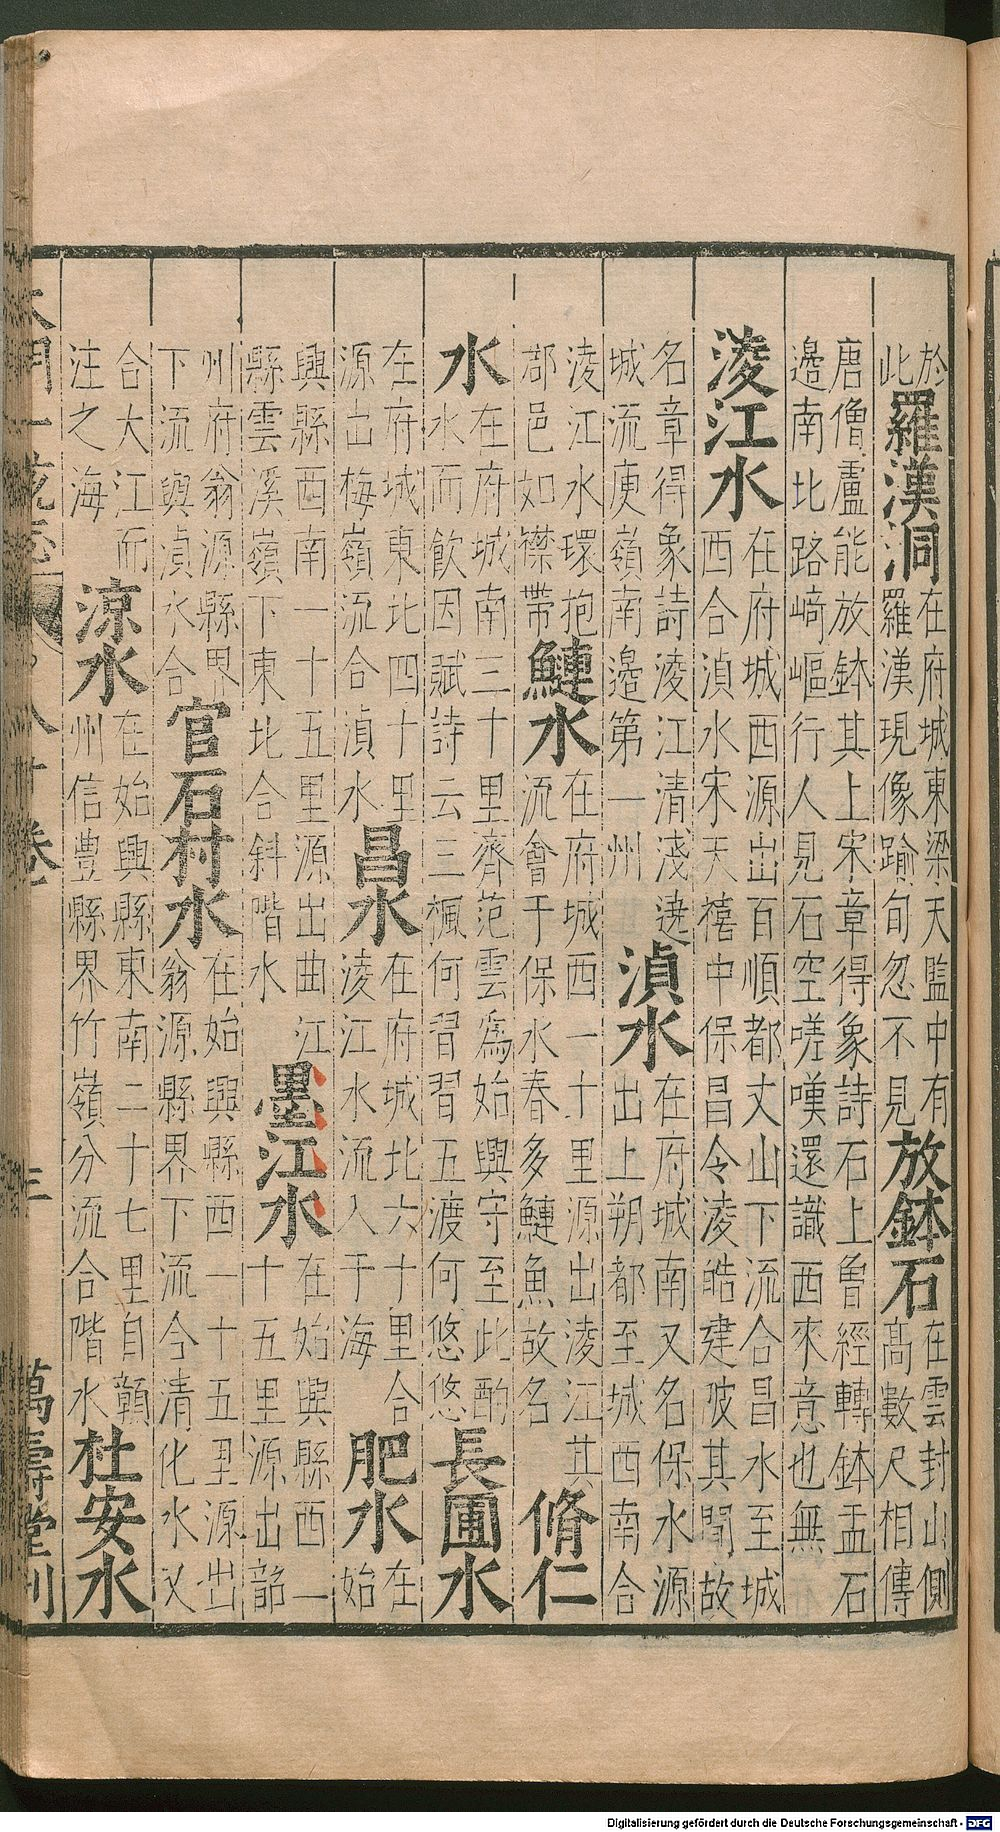 於
此
羅漢洞
在府城東梁天監中有
羅漢現像踰旬忽不見
放鉢石
在雲封山側
髙數尺相傳
唐僧盧能放鉢其上宋章得象詩石上魯經轉鉢盂石
邊南北路崎嶇行人見石空嗟嘆還識西來意也無
淩江水
在府城西源出百順都丈山下流合昌水至城
西合湞水宋天禧中保昌令淩皓建陂其間故
名章得象詩淩江清淺遶
城流庾嶺南邊第一州
湞水
在府城南又名保水源
出上朔都至城西南合
淩江水環抱
郡邑如襟帶
鰱水
在府城西一十里源出淩江其
流會于保水春多鰱魚故名
脩仁
水
在府城南三十里齊范雲為始興守至此酌
水而飲因賦詩云三楓何習習五渡何悠悠
長圃水
在府城東北四十里
源出梅嶺流合湞水
昌水
在府城北六十里合
淩江水流入于海
肥水
在
始
興縣西南一十五里源出曲江
縣雲溪嶺下東北合斜階水
墨江水
在始興縣西一
十五里源出韶
州府翁源縣界
下流與湞水合
官石村水
在始興縣西一十五里源出
翁源縣界下流今清化水又
合大江而
注之海
涼水
在始興縣東南二十七里自贛
州信豊縣界竹嶺分流合階水
杜安水
大明一統志 八十卷 三 萬壽堂刊
Digitalisierung gefördert durch die Deutsche Forschungsgemeinschaft - DFG